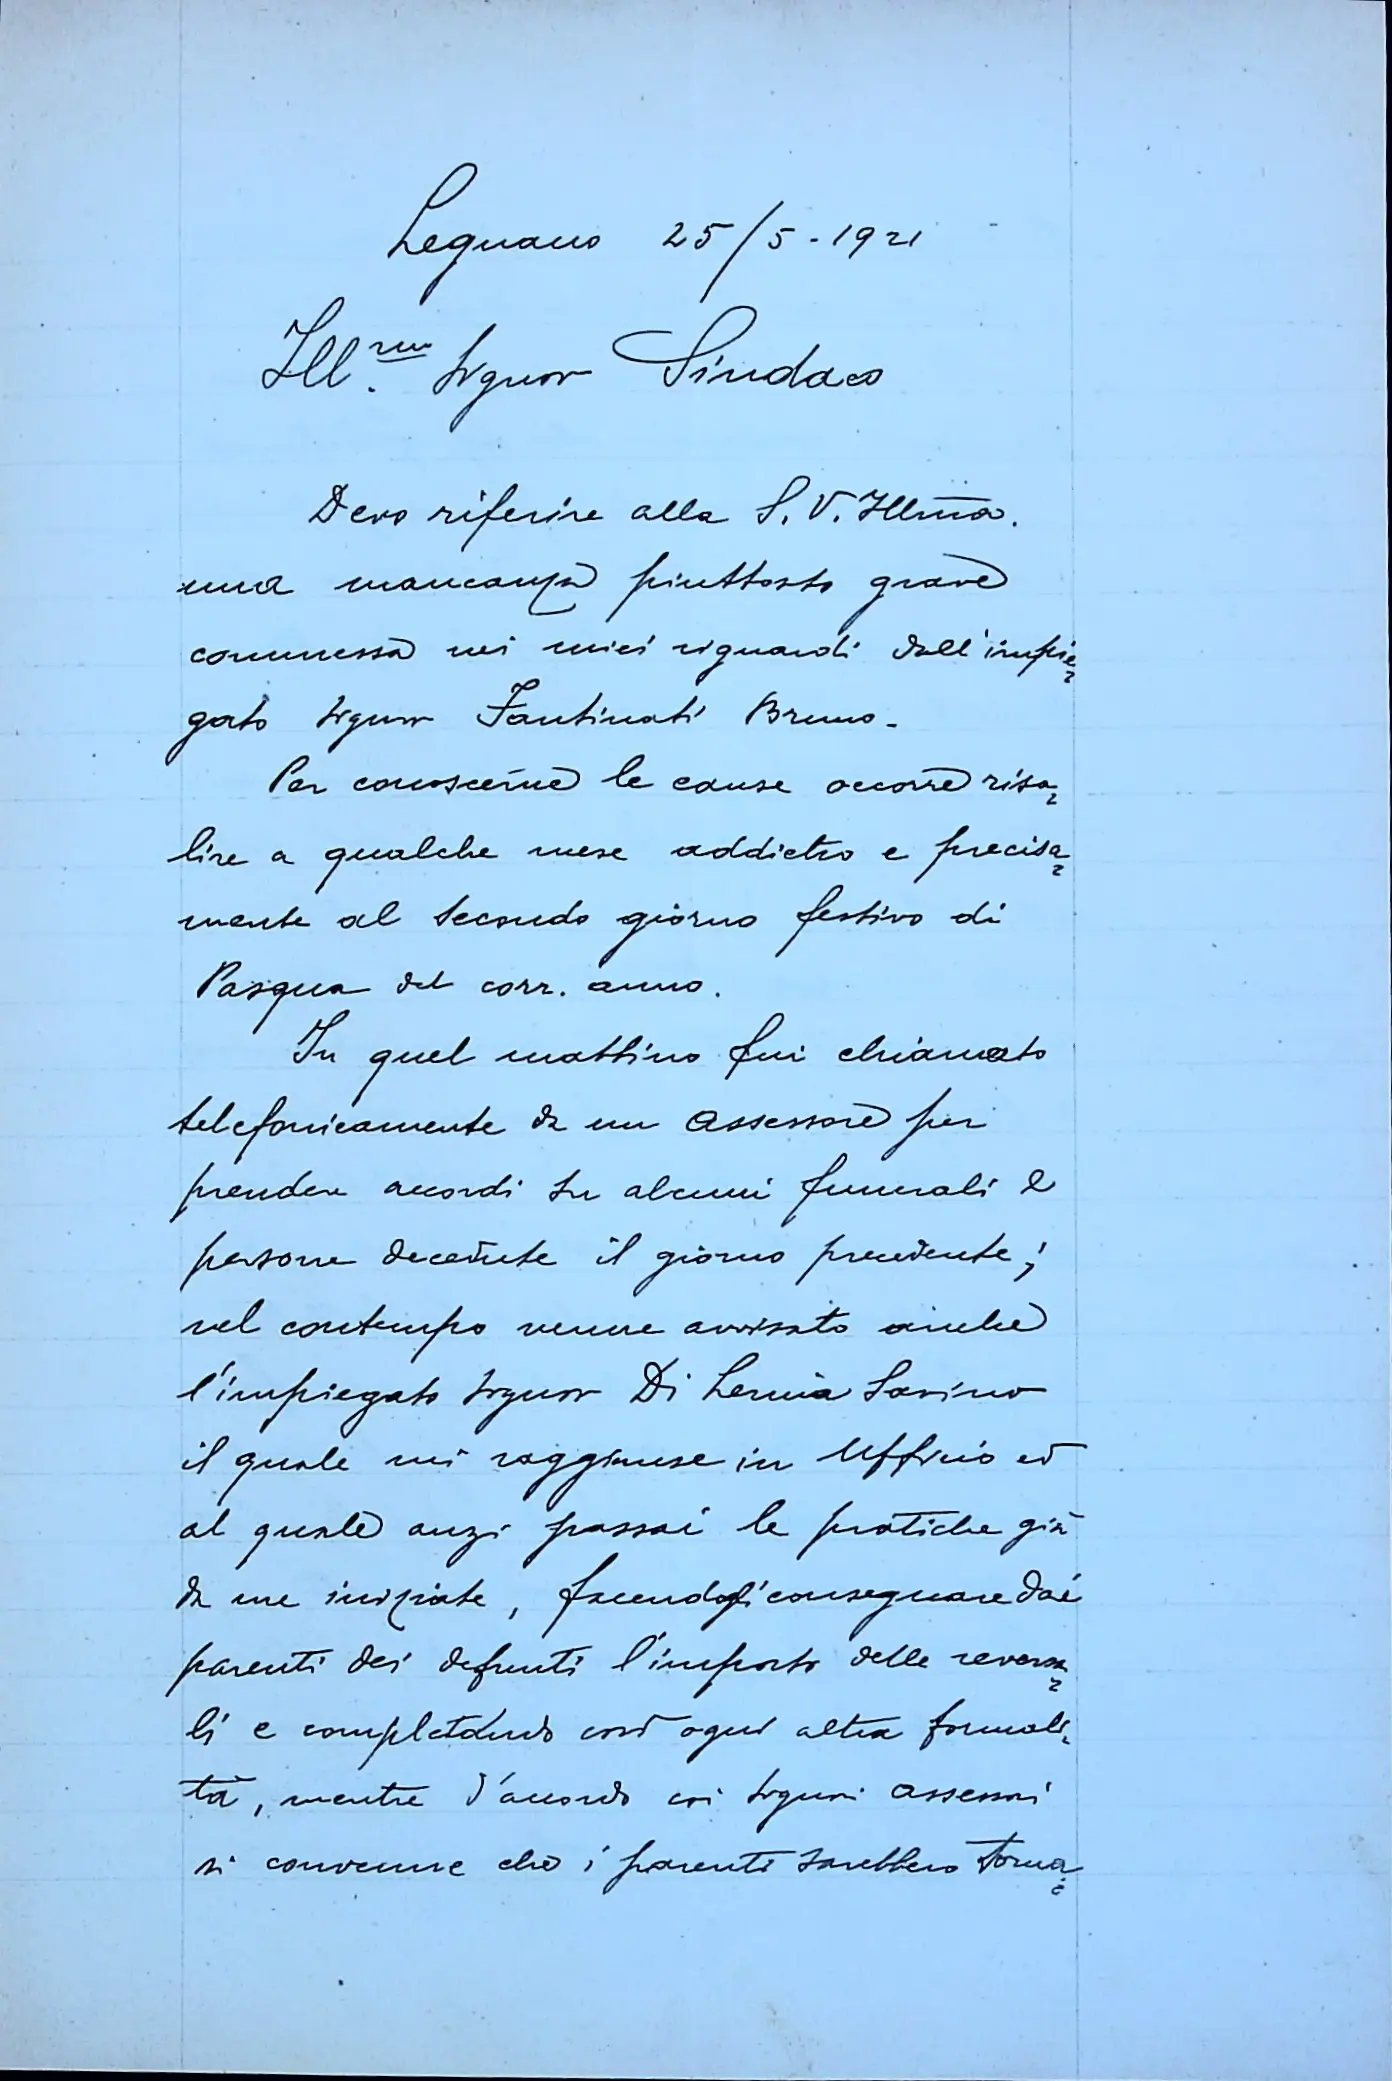 Legnano 25/5-1921
Ill.mo Signor Sindaco
Devo riferire alla S. V. Illma.
una mancanza piuttosto grave
commessa nei miei riguardi dall'impie=
gato Signor Fantinati Bruno.
Per conoscerne le cause occorre risa=
lire a qualche mese addietro e precisa=
mente al secondo giorno festivo di
Pasqua del corr. anno.
In quel mattino fui chiamato
telefonicamente da un Assessore per
prendere accordi su alcuni funerali di
persone decedute il giorno precedente;
nel contempo venne avvisato anche
l'impiegato Signor Di Lernia Savino
il quale mi raggiunse in Ufficio ed
al quale anzi passai le pratiche già
da me iniziate, facendogli consegnare dai
parenti dei defunti l'importo delle reversa=
li e completando così ogni altra formali=
tà, mentre d'accordo coi Signori Assessori
si convenne che i parenti sarebbero torna=